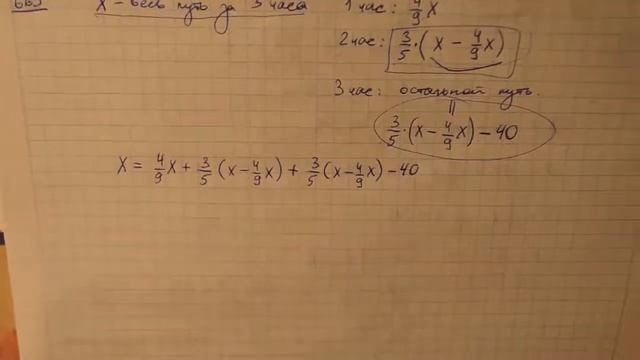 665 X - весь путь за 3 часа
1 час: 4/9 X
2 час: 3/5 · (X - 4/9 X)
3 час: остальной путь.
=
3/5 · (X - 4/9 X) - 40
X = 4/9 X + 3/5 (X - 4/9 X) + 3/5 (X - 4/9 X) - 40